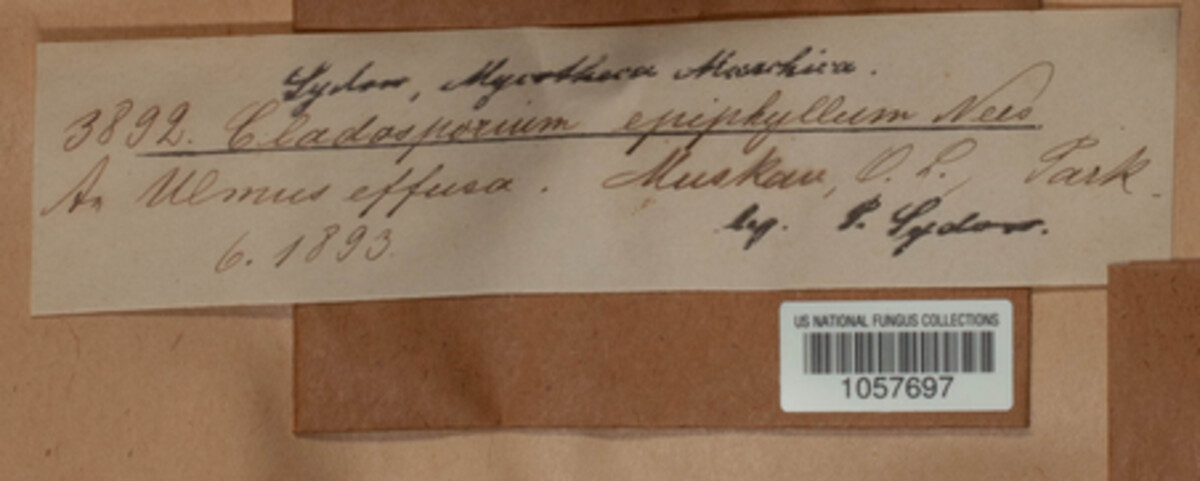 Sydow, Mycotheca Marchica.
3892. Cladosporium epiphyllum Nees
An Ulmus effusa. Muskau, O. L., Park.
leg. P. Sydow.
6. 1893
US NATIONAL FUNGUS COLLECTIONS
1057697